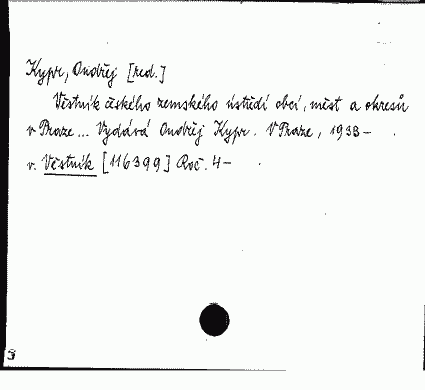 Kypr, Ondřej [red.]
Věstník českého zemského ústředí obcí, měst a okresů
v Praze... Vydává Ondřej Kypr. V Praze, 1938-
v. Věstník [116399] Roč. 4-